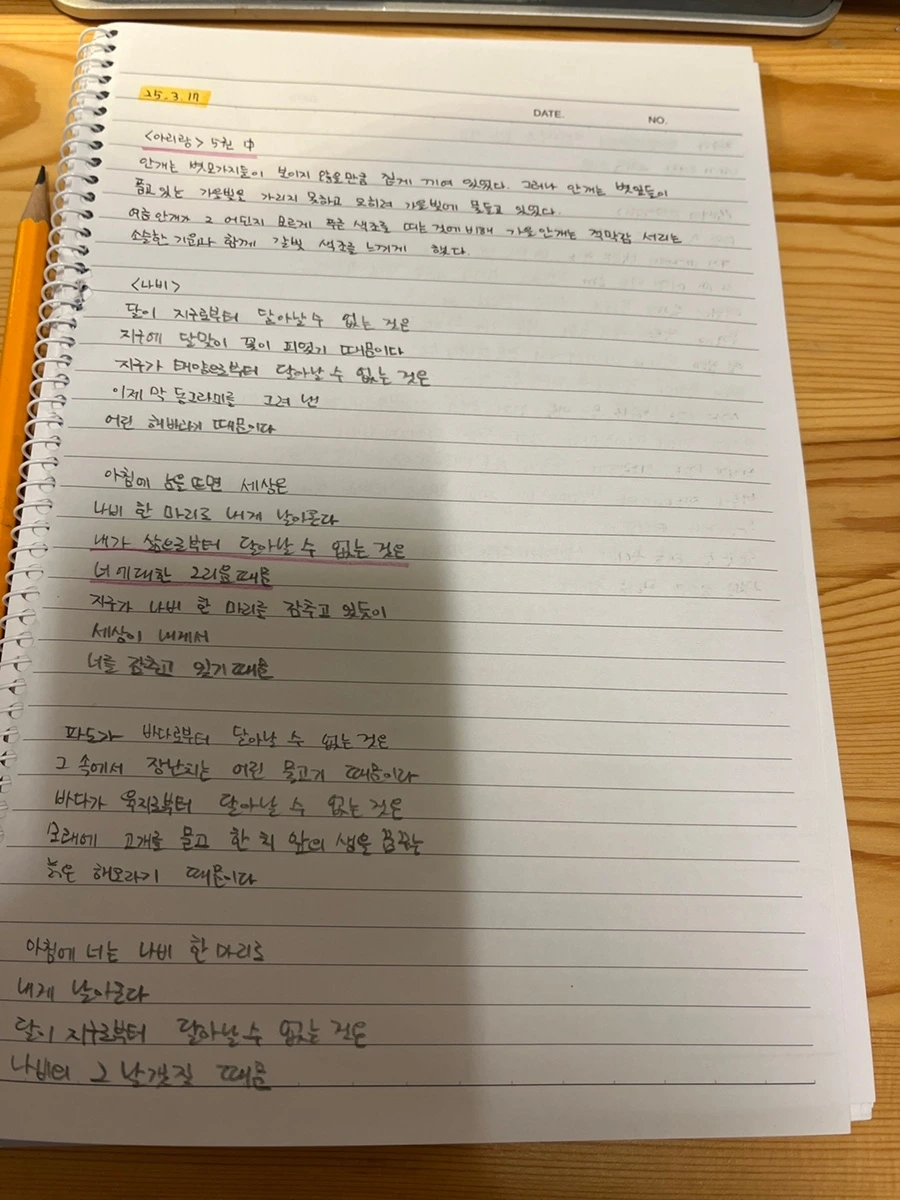 25.3.17
DATE.
NO.
<아리랑> 5권 中
안개는 볏모가지들이 보이지 않을만큼 짙게 끼여 있었다. 그러나 안개는 볏잎들이
품고 있는 가을빛은 가리지 못하고 오히려 가을빛에 물들고 있었다.
여름안개가 그 어딘지 모르게 푸른 색조를 띠는 것에 비해 가을안개는 적막감 서리는
소슬한 기운과 함께 갈빛 색조를 느끼게 했다.
<나비>
달이 지구로부터 달아날 수 없는 것은
지구에 달맞이 꽃이 피었기 때문이다
지구가 태양으로부터 달아날 수 없는 것은
이제 막 동그라미를 그려 낸
어린 해바라기 때문이다
아침에 눈을 뜨면 세상은
나비 한 마리로 내게 날아온다
내가 삶으로부터 달아날 수 없는 것은
너에대한 그리움때문
지구가 나비 한 마리를 감추고 있듯이
세상이 내게서
너를 감추고 있기 때문
파도가 바다로부터 달아날 수 없는 것은
그 속에서 장난치는 어린 물고기 때문이라
바다가 육지로부터 달아날 수 없는 것은
모래에 고개를 묻고 한 치 앞의 생을 꿈꾸는
늙은 해오라기 때문이다
아침에 너는 나비 한 마리로
내게 날아온다
달이 지구로부터 달아날 수 없는 것은
나비의 그 날갯짓 때문